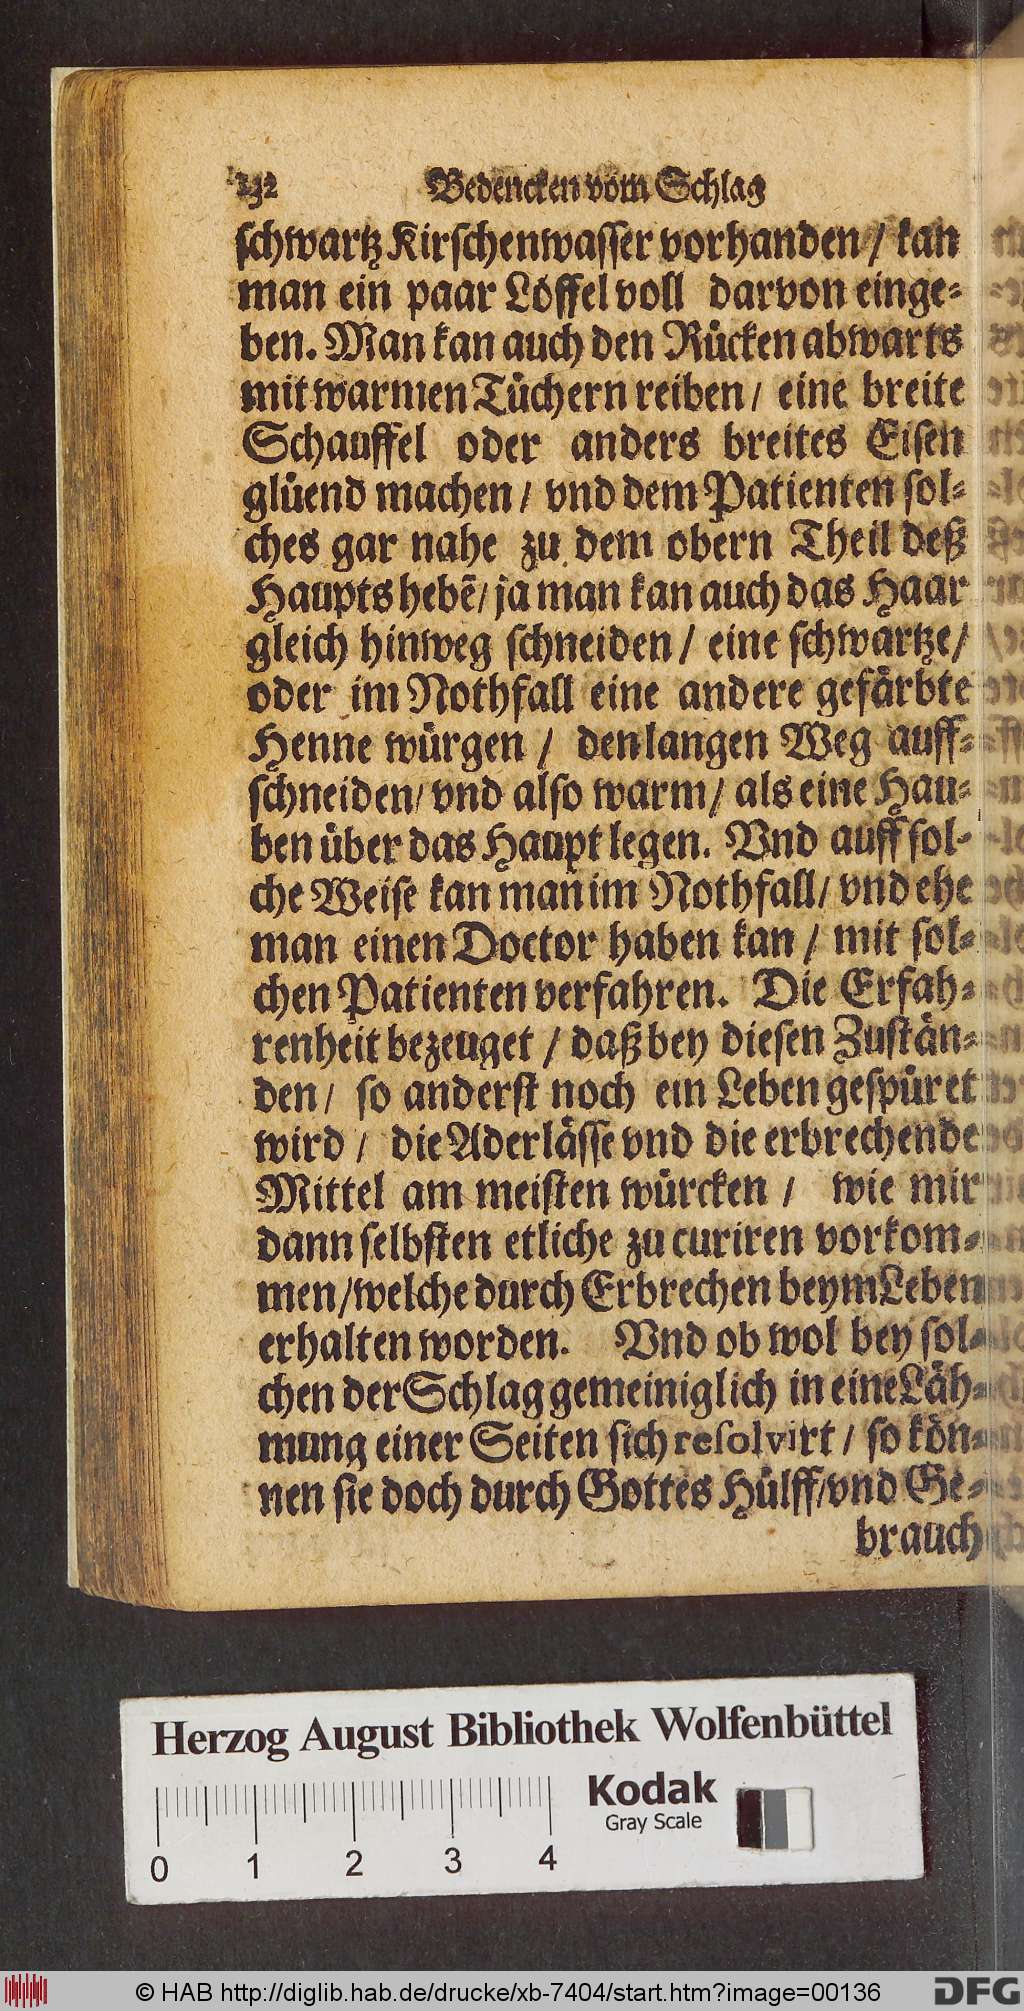 132 Bedencken vom Schlag
schwartz Kirschenwasser vorhanden / kan
man ein paar Löffel voll darvon einge-
ben. Man kan auch den Rücken abwarts
mit warmen Tüchern reiben / eine breite
Schauffel oder anders breites Eisen
glüend machen / vnd dem Patienten sol-
ches gar nahe zu dem obern Theil deß
Haupts hebē / ja man kan auch das Haar
gleich hinweg schneiden / eine schwartze /
oder im Nothfall eine andere gefärbte
Henne würgen / den langen Weg auff-
schneiden / vnd also warm / als eine Hau-
ben über das Haupt legen. Vnd auff sol-
che Weise kan man im Nothfall / vnd ehe
man einen Doctor haben kan / mit sol-
chen Patienten verfahren. Die Erfah-
renheit bezeuget / daß bey diesen Zustän-
den / so anderst noch ein Leben gespüret
wird / die Aderlässe vnd die erbrechende
Mittel am meisten würcken / wie mir
dann selbsten etliche zu curiren vorkom-
men / welche durch Erbrechen beym Leben
erhalten worden. Vnd ob wol bey sol-
chen der Schlag gemeiniglich in eine Läh-
mung einer Seiten sich resolvirt / so kön-
nen sie doch durch Gottes Hülff / vnd Ge-
brauch
Herzog August Bibliothek Wolfenbüttel
Kodak
Gray Scale
0 1 2 3 4
© HAB http://diglib.hab.de/drucke/xb-7404/start.htm?image=00136
DFG